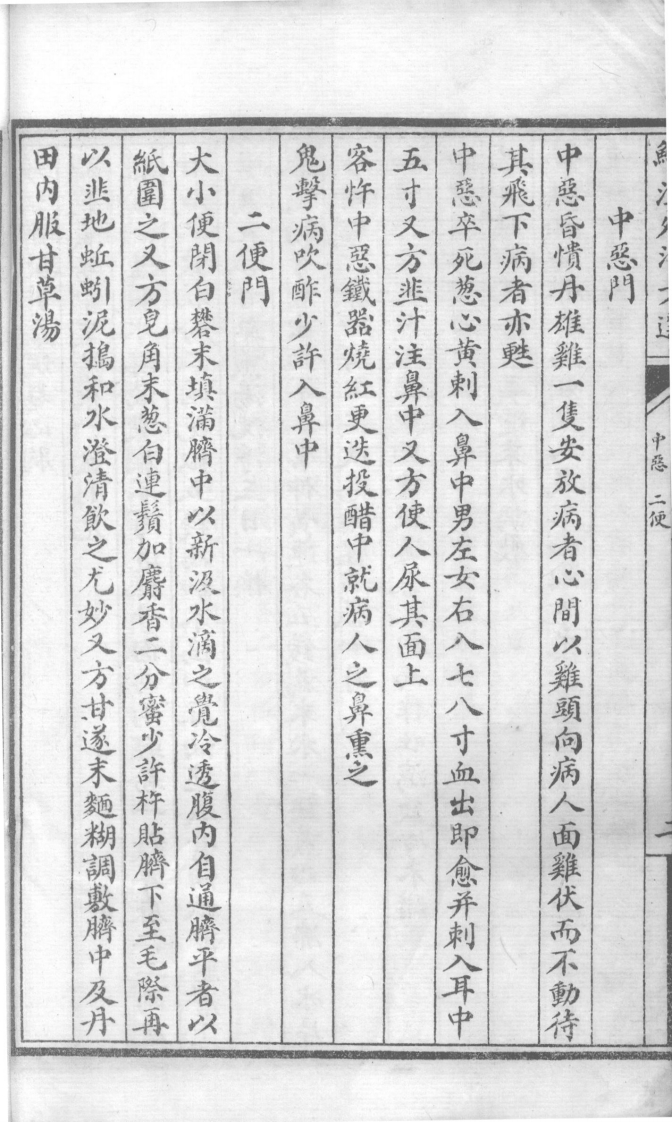 中惡門
中惡昏憒丹雄雞一隻安放病者心間以雞頭向病人面雞伏而不動待
其飛下病者亦甦
中惡卒死葱心黃刺入鼻中男左女右入七八寸血出即愈并刺入耳中
五寸又方韭汁注鼻中又方使人尿其面上
客忤中惡鐵器燒紅更迭投醋中就病人之鼻熏之
鬼擊病吹酢少許入鼻中
二便門
大小便閉白礬末填滿臍中以新汲水滴之覺冷透腹內自通臍平者以
紙圍之又方皂角末葱白連鬚加麝香二分蜜少許杵貼臍下至毛際再
以韭地蚯蚓泥搗和水澄清飲之尤妙又方甘遂末麵糊調敷臍中及丹
田內服甘草湯
中惡 二便